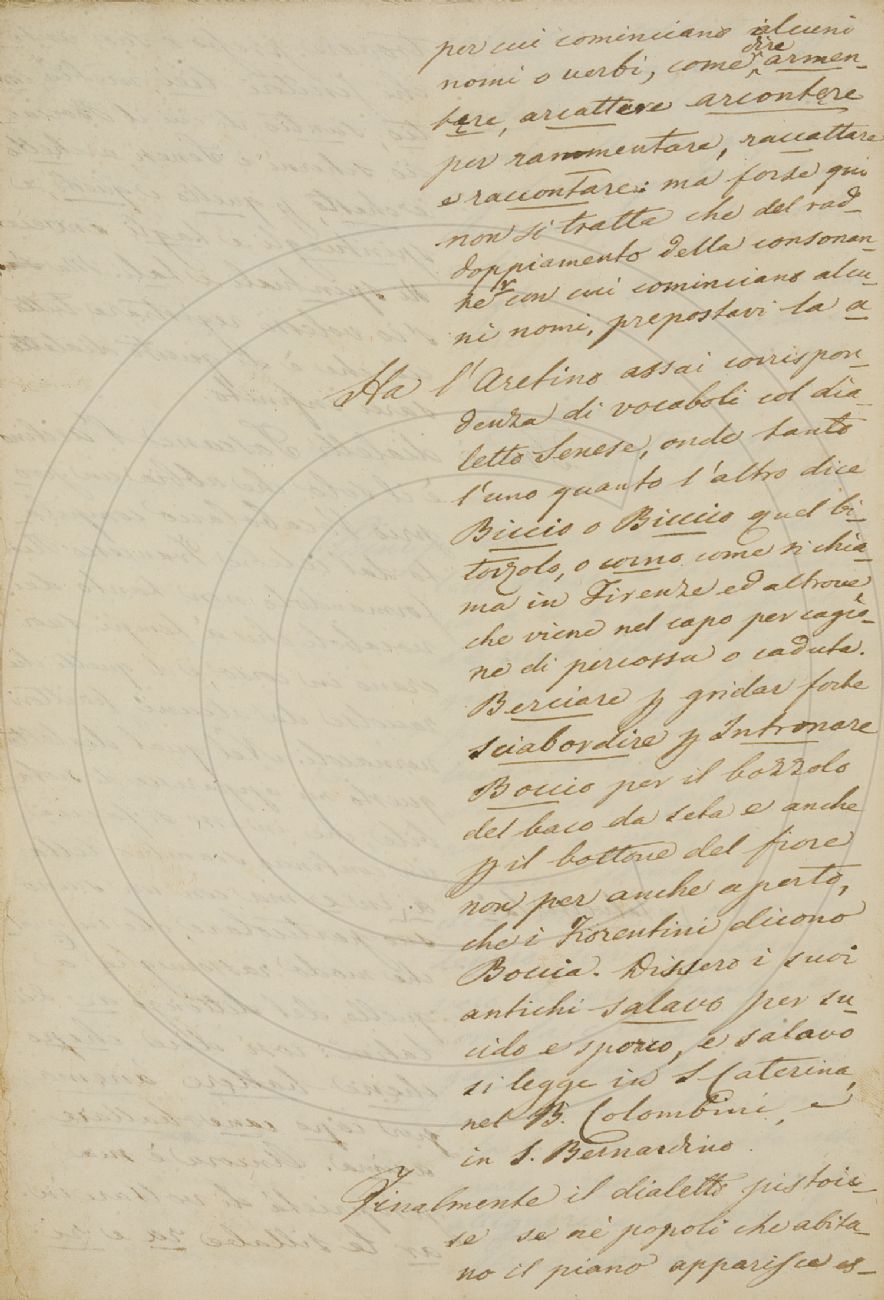 per cui cominciano alcuni
dire
nomi o verbi, come armen-
tere, arcattere arcontere
per rammentare, raccattare
e raccontare: ma forse qui
non si tratta che del rad-
doppiamento della consonan-
te r con cui cominciano alcu-
ni nomi, prepostavi la a
Ha l'Aretino assai corrispon-
denza di vocaboli col dia-
letto Senese, onde tanto
l'uno quanto l'altro dice
Biccio o Biccico quel bi-
torzolo, o corno come si chia-
ma in Firenze ed altrove
che viene nel capo per cagio-
ne di percossa o caduta.
Berciare p gridar forte
sciabordire p Intronare
Boccio per il bozzolo
del baco da seta e anche
p il bottone del fiore
non per anche aperto,
che i Fiorentini dicono
Boccia. Dissero i suoi
antichi salavo per su-
cido e sporco, e salavo
si legge in S. Caterina,
nel B. Colombini, e
in S. Bernardino.
Finalmente il dialetto pistoie-
se se ne' popoli che abita-
no il piano apparisce es-